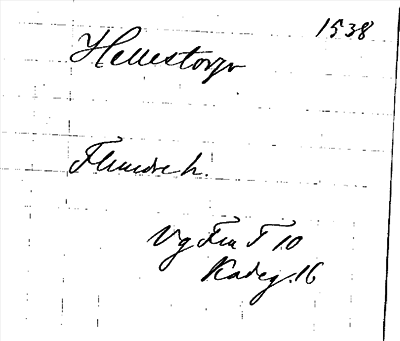 1538
Hellestorp
Flundreh.
Vg Fru T 10
Kadeg. 16